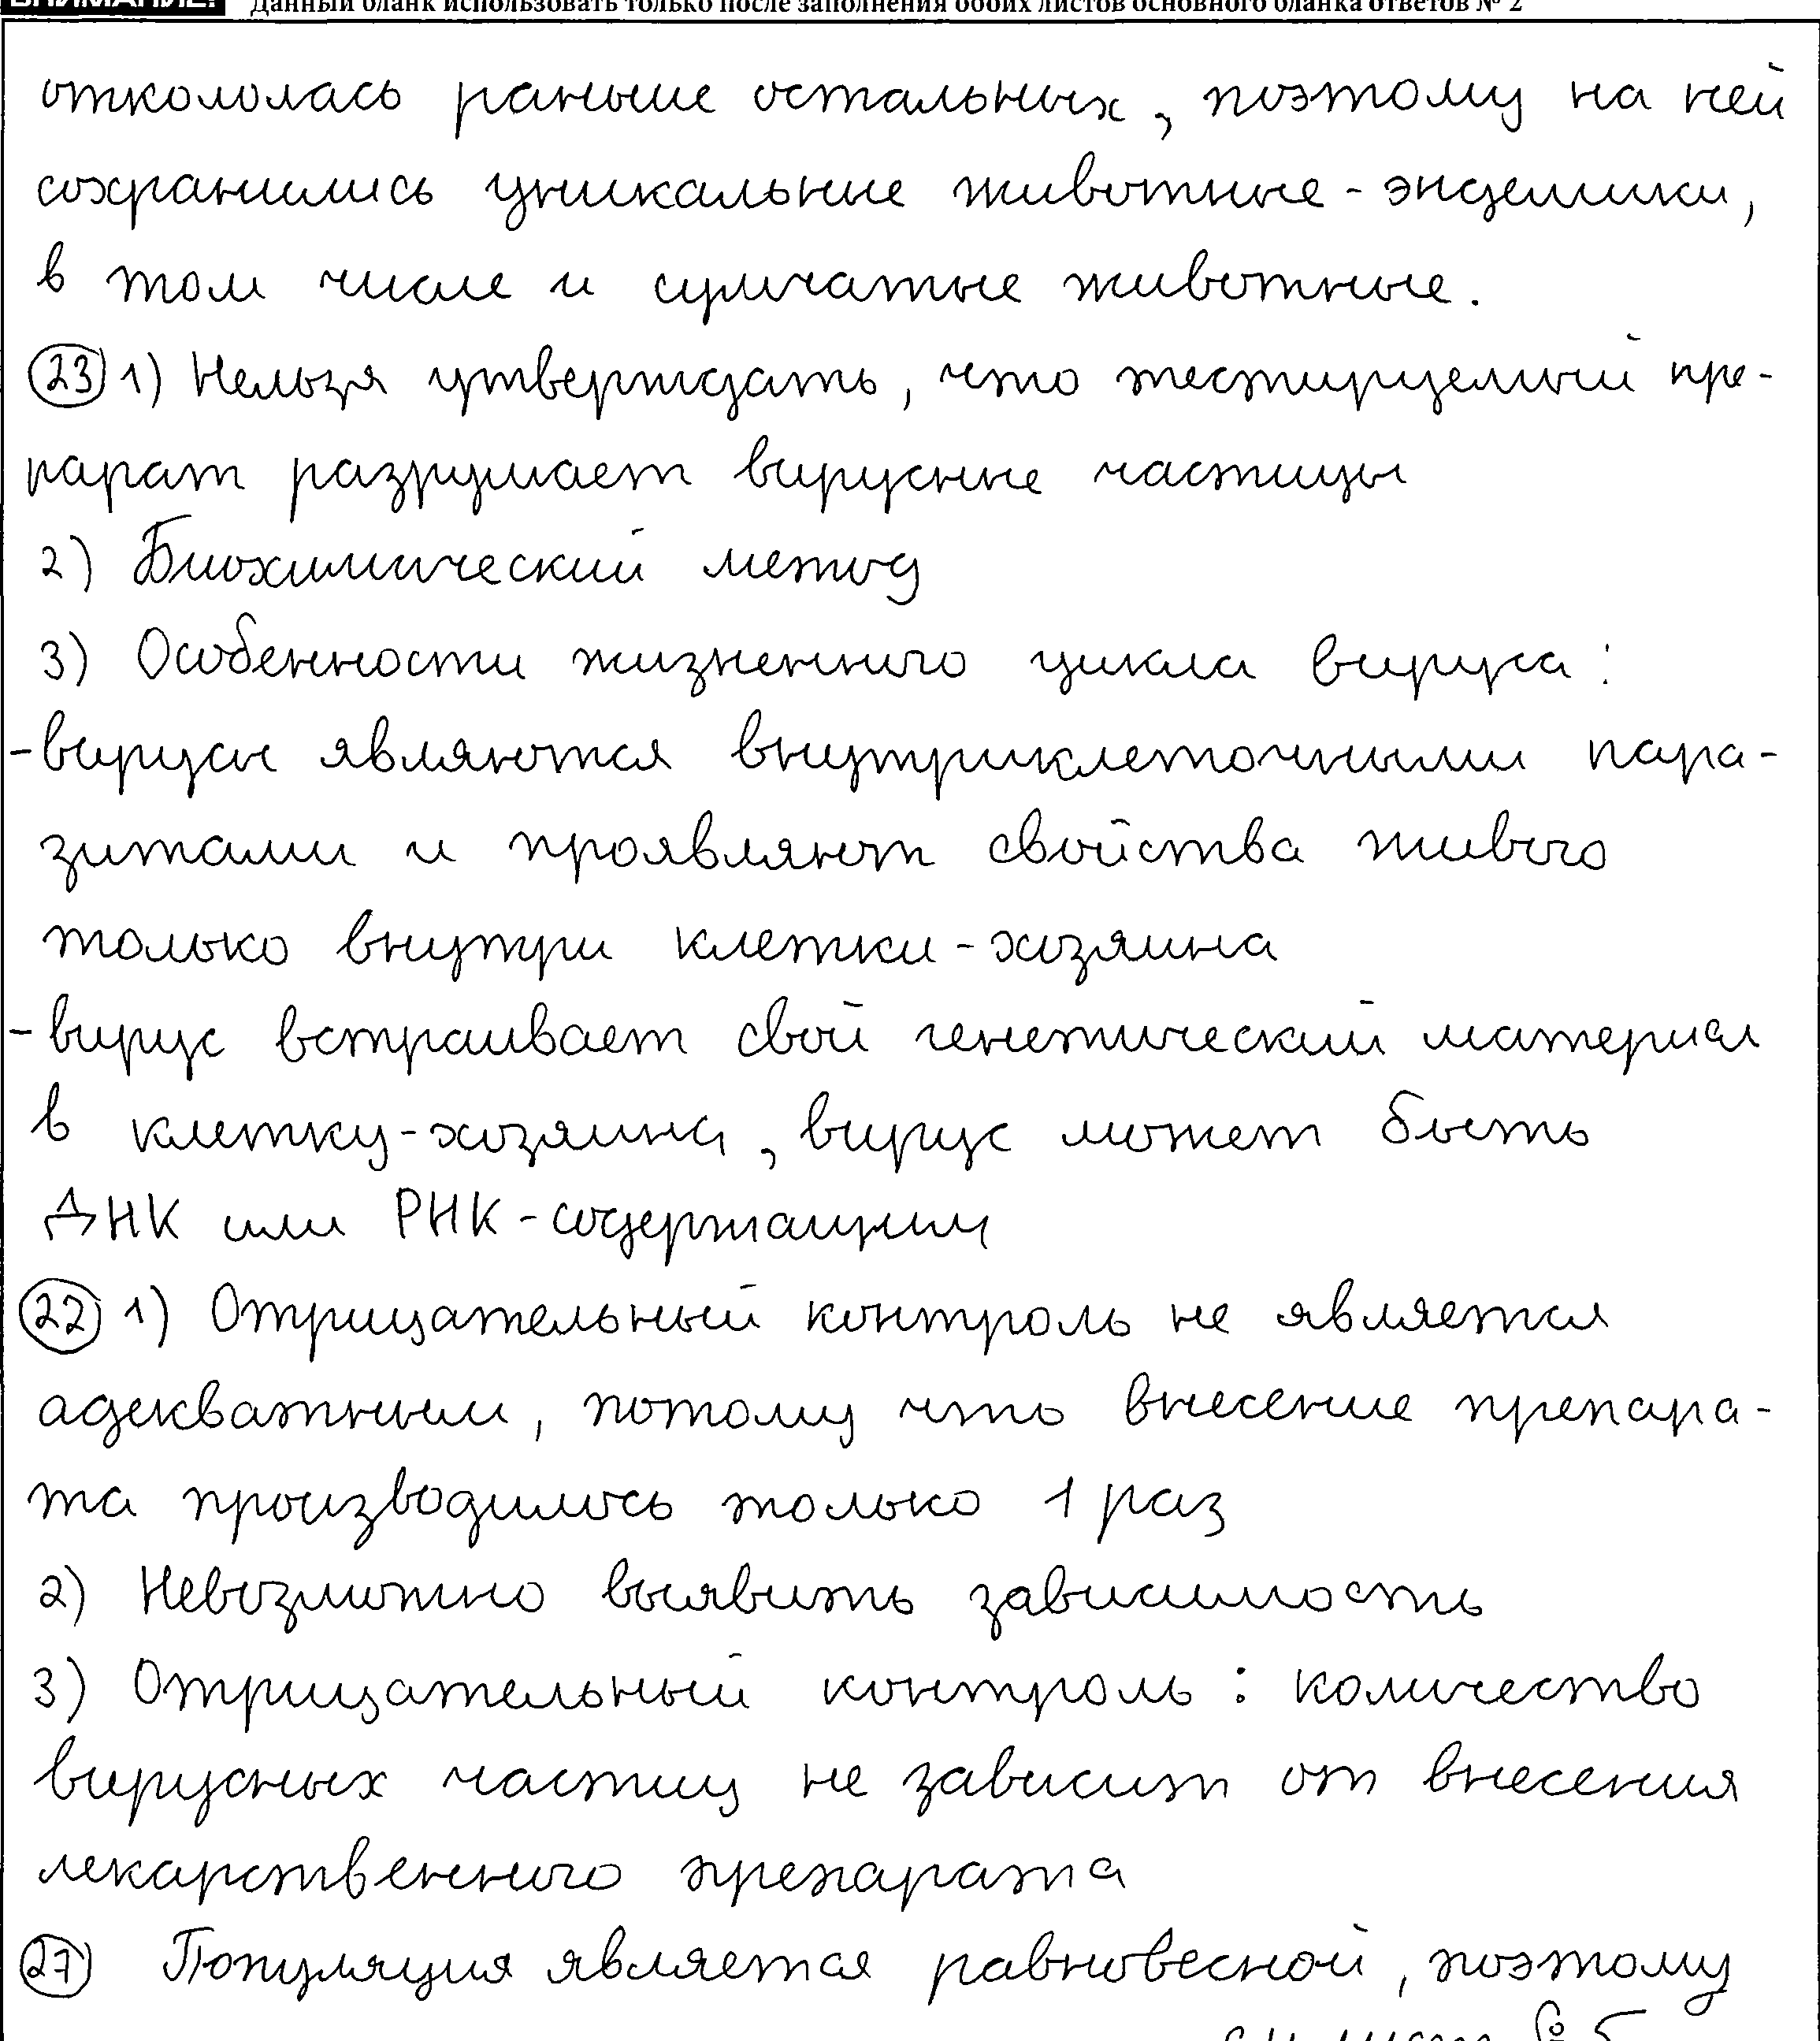 ВНИМАНИЕ! Данный бланк использовать только после заполнения обоих листов основного бланка ответов № 2
откололась раньше остальных, поэтому на ней
сохранились уникальные животные-эндемики,
в том числе и сумчатые животные.
23 1) Нельзя утверждать, что тестируемый пре-
парат разрушает вирусные частицы
2) Биохимический метод
3) Особенности жизненного цикла вируса:
-вирусы являются внутриклеточными пара-
зитами и проявляют свойства живого
только внутри клетки-хозяина
-вирус встраивает свой генетический материал
в клетку-хозяина, вирус может быть
ДНК или РНК-содержащим
22 1) Отрицательный контроль не является
адекватным, потому что внесение препара-
та производилось только 1 раз
2) Невозможно выявить зависимость
3) Отрицательный контроль: количество
вирусных частиц не зависит от внесения
лекарственного препарата
27 Популяция является равновесной, поэтому
см лист 5